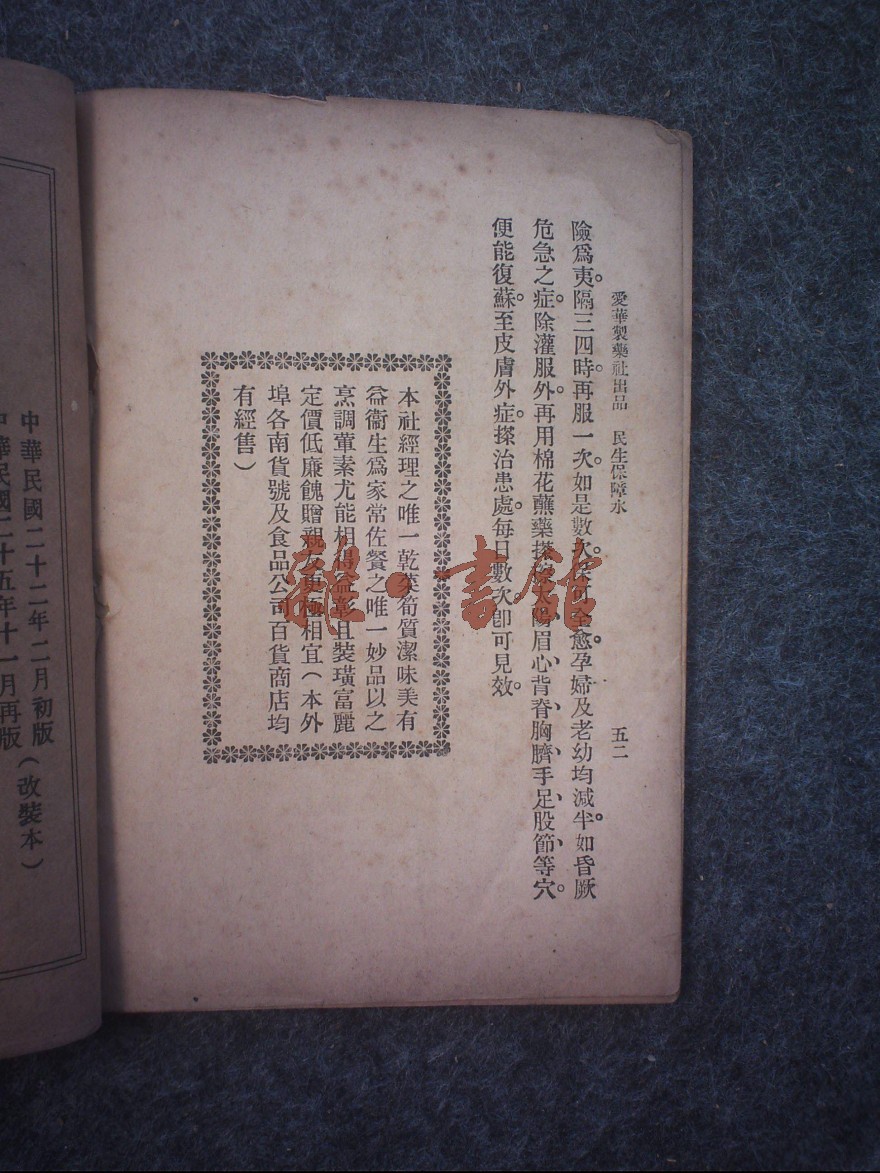 愛華製藥社出品　民生保障水　五二
險爲夷。隔三四時。再服一次。如是數次。保可全愈。孕婦及老幼均減半。如昏厥
危急之症。除灌服外。再用棉花蘸藥搽太陽、眉心、背脊、胸臍、手足、股節、等穴。
便能復蘇。至皮膚外症。搽治患處。每日數次。卽可見效。
本社經理之唯一乾菜筍質潔味美有
益衞生爲家常佐餐之唯一妙品以之
烹調葷素尤能相得益彰且裝璜富麗
定價低廉餽贈親友更極相宜（本外
埠各南貨號及食品公司百貨商店均
有經售）
雜·書館
中華民國二十二年二月初版（改裝本）
中華民國二十五年十一月再版